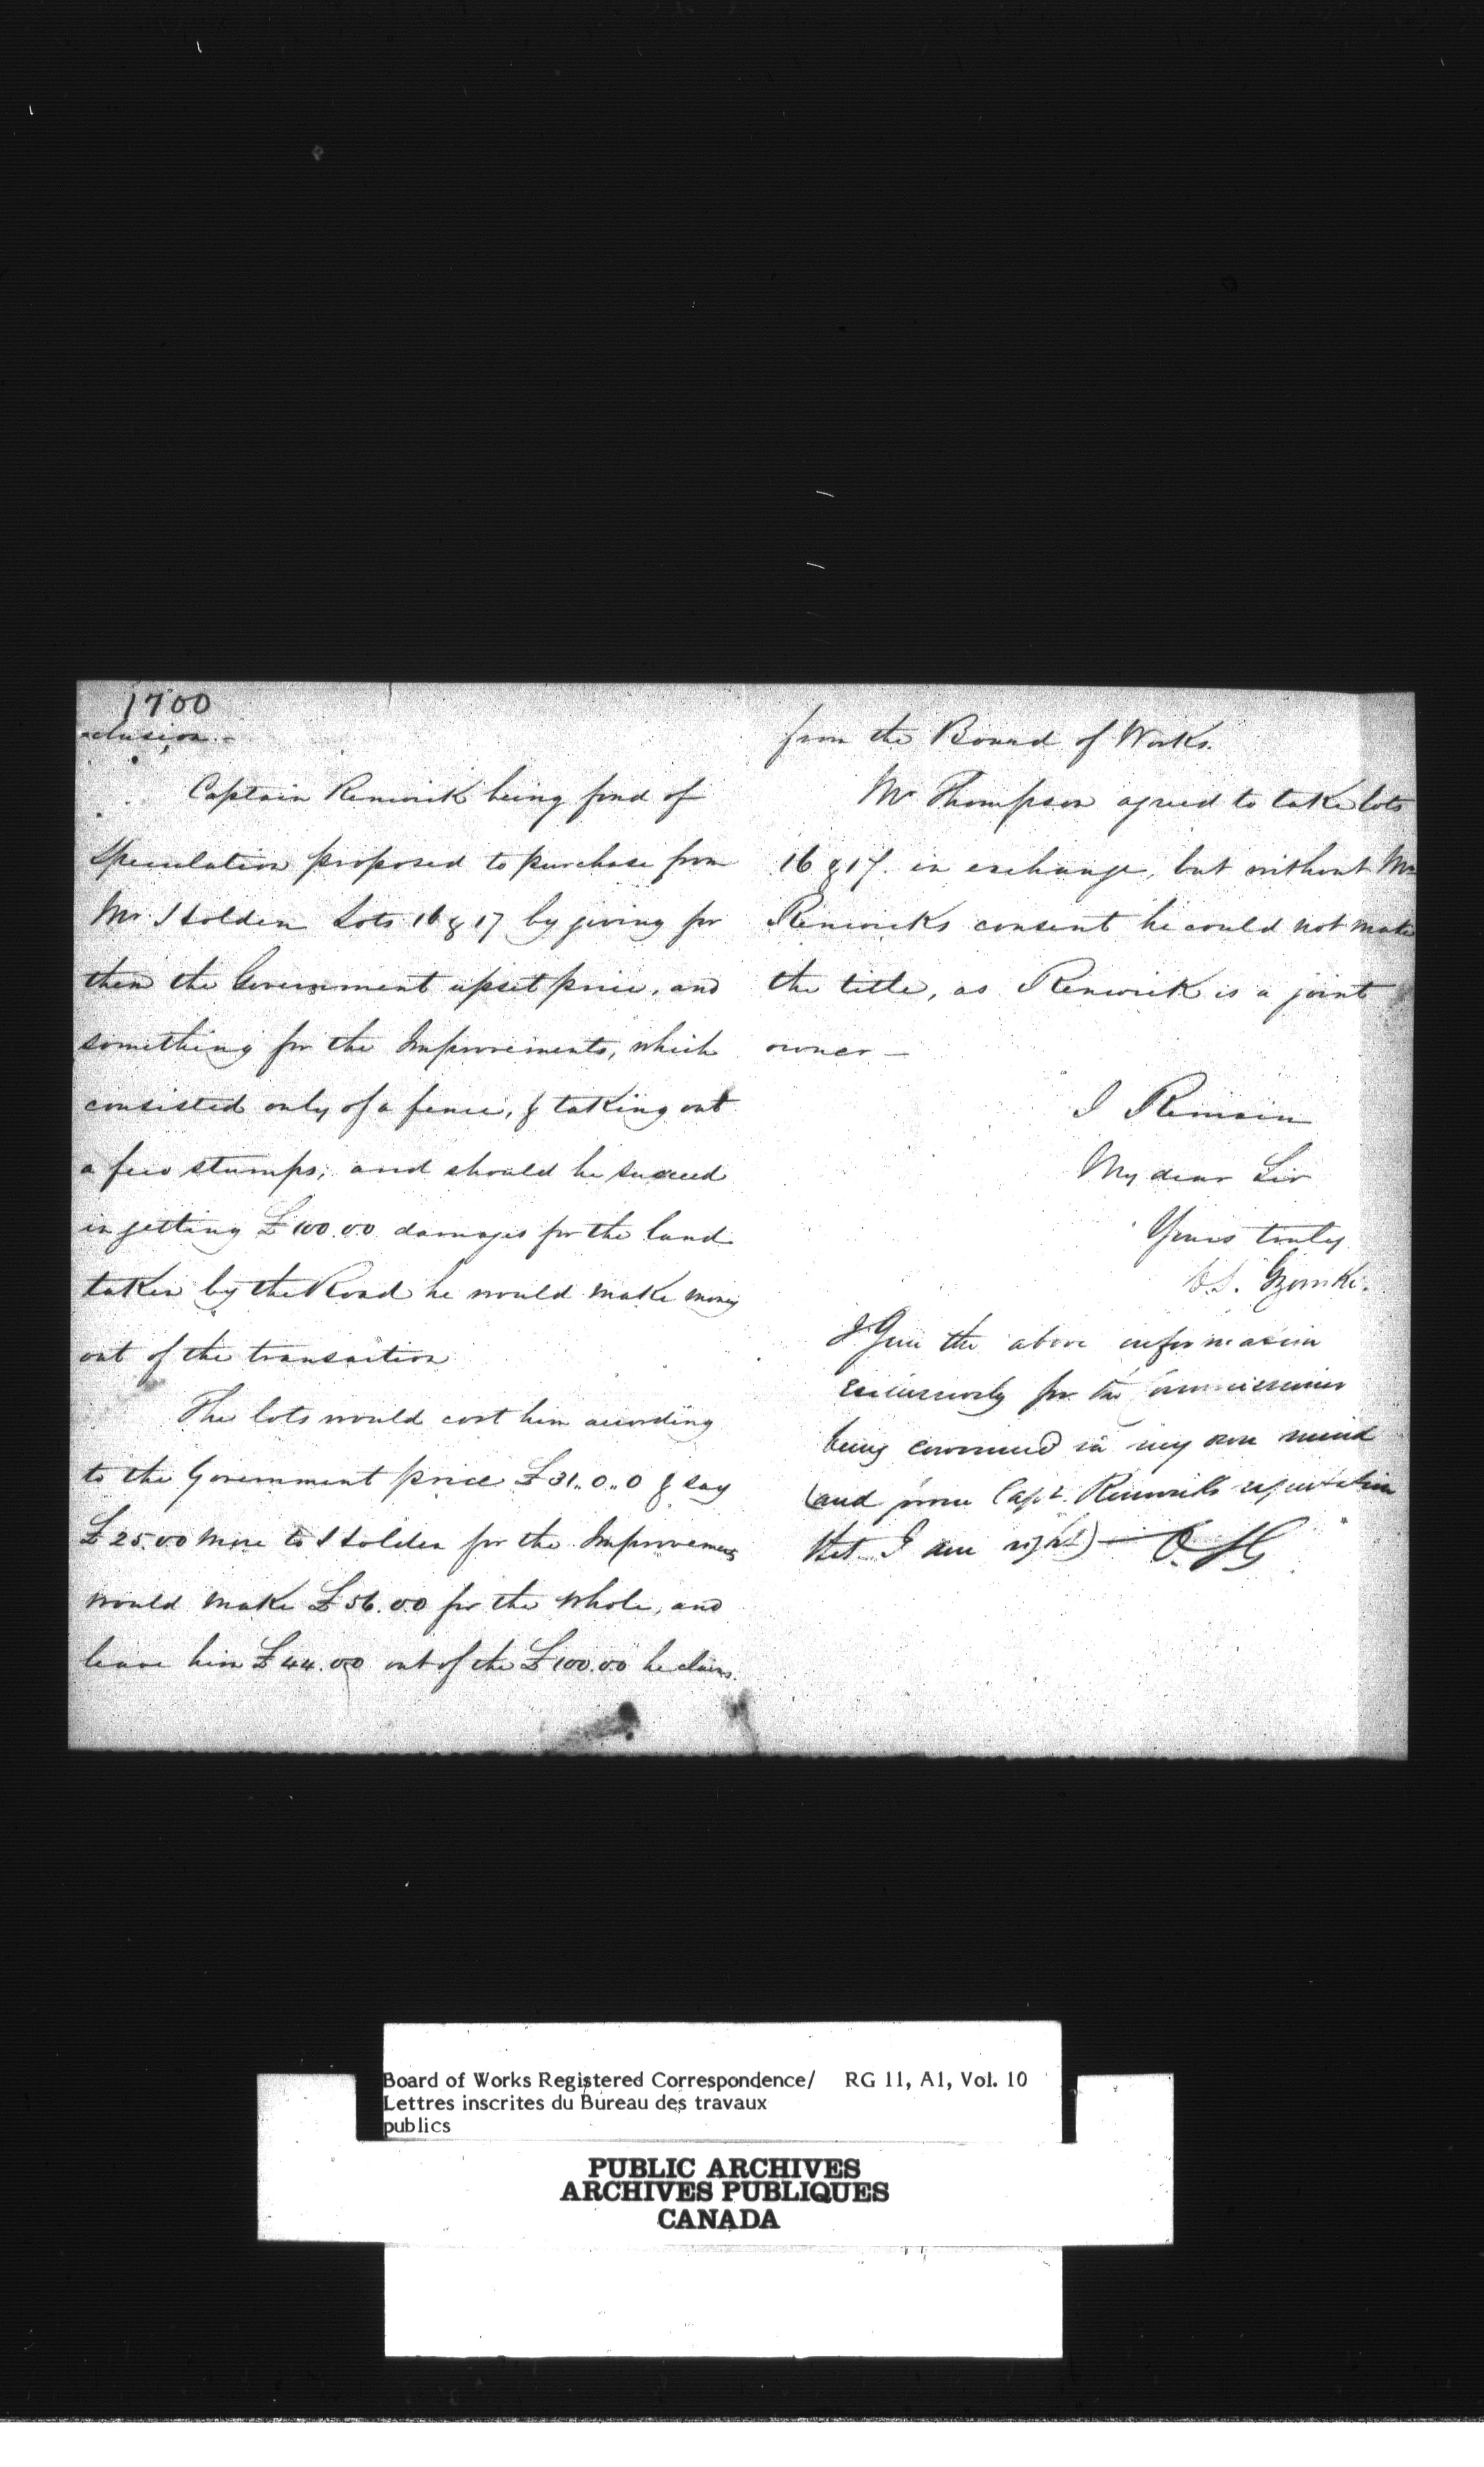 1700
clusion.-
Captain Renwick being fond of
Speculation proposed to purchase from
Mr. Holden Lots 16 & 17 by giving for
them the Government upset price, and
something for the Improvements, which
consisted only of a fence, & taking out
a few stumps; and should he succeed
in getting £100.0.0 damages for the land
taken by the Road he would make money
out of the transaction
The lots would cost him according
to the Government price £31..0..0 & say
£25.0.0 more to Holden for the Improvements
would make £56.0.0 for the whole, and
leave him £44.0.0 out of the £100.0.0 he claims.
from the Board of Works.
Mr Thompson agreed to take lots
16 & 17. in exchange, but without Mr
Renwicks consent he could not make
the title, as Renwick is a joint
owner —
I Remain
My dear Sir
Yours truly
C.S. Gzowski.
I Give the above information
exclusively for the Commissioner
being convinced in my own mind
(and from Capt. Renwicks reputation
that I am right) —
Board of Works Registered Correspondence/ RG 11, A1, Vol. 10
Lettres inscrites du Bureau des travaux
publics
PUBLIC ARCHIVES
ARCHIVES PUBLIQUES
CANADA